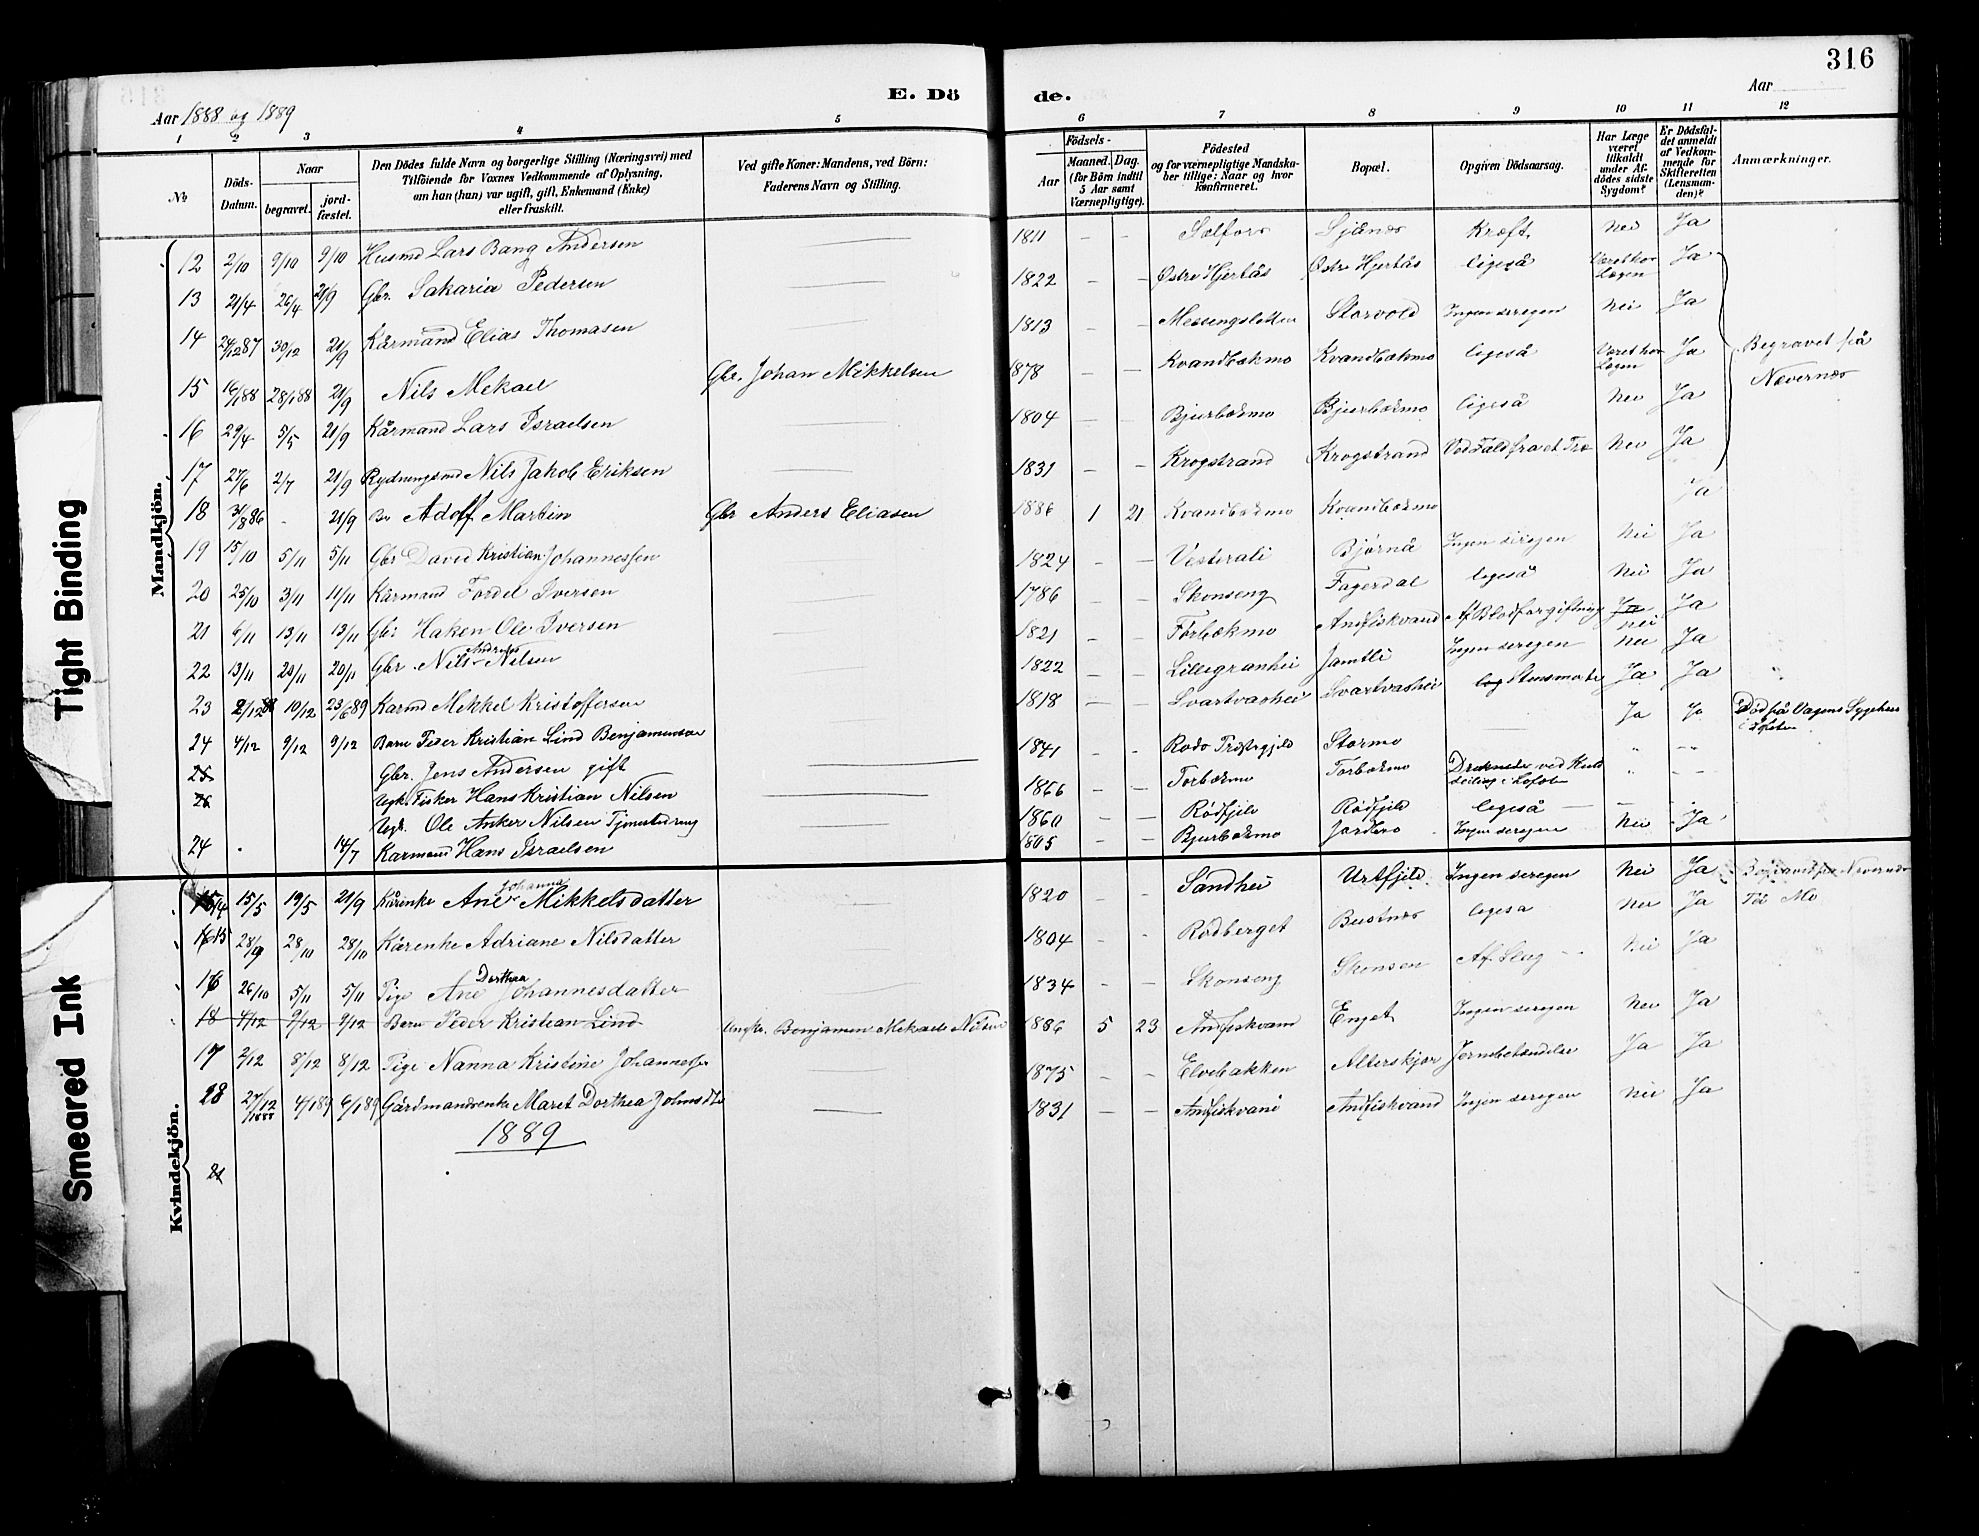 316
E. Dö de.
Aar 1888 og 1889
Aar
1 2 3 4 5 6 7 8 9 10 11 12
No
Döds-Datum.
Naar
begravet.
jord-fæstet.
Den Dödes fulde Navn og borgerlige Stilling (Næringsvei) med
Tilföiende for Voxnes Vedkommende af Oplysning,
om han (hun) var ugift, gift, Enkemand (Enke)
eller fraskilt.
Ved gifte Koner: Mandens, ved Börn:
Faderens Navn og Stilling.
Födsels-
Aar
Maaned. Dag.
(for Börn indtil
5 Aar samt
Værnepligtige).
Födested
og for værnepligtige Mandska-
ber tillige: Naar og hvor
konfirmeret.
Bopæl.
Opgiven Dödsaarsag.
Har Læge
været
tilkaldt
under Af-
dødes sidste
Sygdom?
Er Dödsfal-
det anmeldt
af Vedkom-
mende for
Skifteretten
(Lensman-
den)?
Anmærkninger.
Mandkjön.
12 2/10 9/10 9/10 Husmd Lars Bang Andersen 1811 Selfors Sjånes Kræft Nei Ja
13 21/4 26/4 21/9 Gbr. Sakarias Pedersen 1822 Østre Hjertås Østre Hjertås ligeså Været hos Lægen Ja
14 24/12 87 30/12 21/9 Kårmand Elias Thomasen 1813 Messingsletten Storvold Ingen seregen Nei Ja
15 16/1 88 28/1 88 21/9 Nils Mekael Gbr. Johan Mikkelsen 1878 Kvandbækmo Kvandbækmo ligeså Været hos Lægen Ja
Begravet på Nævernes
16 29/4 5/5 21/9 Kårmand Lars Israelsen 1804 Bjurbækmo Bjurbækmo ligeså Nei Ja
17 27/6 2/7 21/9 Rydningsmd Nils Jakob Eriksen 1831 Krogstrand Krogstrand Ved Fald fra et Træ Nei Ja
18 31/8 86 - 21/9 Bn Adolf Martin Gbr Anders Eliasen 1886 1 21 Kvandbækmo Kvandbækmo Ja
19 15/10 5/11 5/11 Gbr David Kristian Johannessen 1824 Vesterali Bjørnå Ingen seregen Nei Ja
20 25/10 3/11 11/11 Kårmand Fordel Iversen 1786 Skonseng Fagerdal ligeså Nei Ja
21 6/11 13/11 13/11 Gbr Haken Ole Iversen 1821 Forbækmo Andfiskvand Af Blodforgiftning Ja nei Ja
22 13/11 20/11 20/11 Gbr. Nils Andreas Nilsen 1822 Lillegranhei Jamtli Ingen seregen Nei Ja
23 2/12 88 10/12 23/6 89 Karmd Mekkel Kristoffersen 1818 Svartvashei Svartvashei Stensmerte Ja Ja
24 4/12 9/12 9/12 Barn Peder Kristian Lind Benjaminsen
25 Gbr. Jens Andersen gift 1841 Rodø Præstegjeld Stormo Ja Ja Död på Vågens Sygehus i Lofoten
26 Ugk. Fisker Hans Kristian Nilsen 1866 Torbækmo Torbækmo Druknede ved Kuldseiling i Lofoten
Ugk. Ole Anker Nilsen 1860 Rødfjeld Rødfjeld ligeså
24 14/7 Karmand Hans Israelsen 1805 Bjurbækmo Jordbro Ingen seregen Nei Ja
Kvindekjön.
14 15/5 19/5 21/9 Kårenke Ane Johanna Mikkelsdatter 1820 Sandhei Urtfjeld Ingen seregen Nei Ja Begravet på Nævernes
15 28/9 28/10 28/10 Kårenke Adriane Nilsdatter 1804 Rodberget Bustnes ligesa Nei Ja Til Mo
16 26/10 5/11 5/11 Pige Ane Dorthea Johannesdatter 1834 Skonseng Skonsen Af Slag Nei Ja
18 4/12 9/12 9/12 Barn Peder Kristian Lind Ungkr. Benjamin Mekael Nilsen 1886 5 23 Andfiskvand Enget Ingen seregen Nei Ja
17 2/12 8/12 8/12 Pige Nanna Kristine Johannesen 1875 Elvebakken Alterskjær Jernbetændelse Ja Ja
18 27/12 1888 4/1 89 6/1 89 Gårdmandsenke Maret Dorthea Johnsdtr 1831 Andfiskvand Andfiskvand Ingen seregen Nei Ja
1889
21
Tight Binding
Smeared Ink